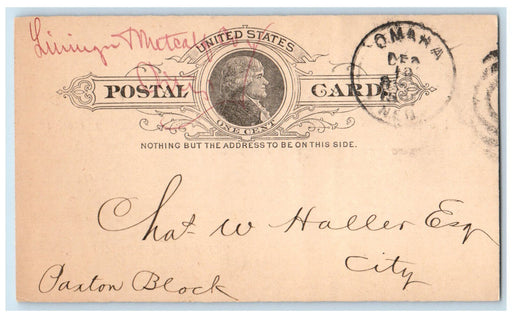 Lininger Metcalf
UNITED STATES
POSTAL CARD
ONE CENT
NOTHING BUT THE ADDRESS TO BE ON THIS SIDE.
OMAHA
DEC
NEB
Chas. W Haller Esq
City
Paxton Block